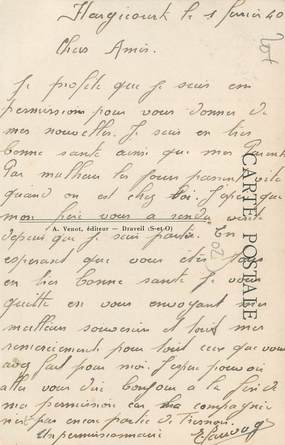 Hargicourt le 1 fevrier 40
Chers Amis.
Je profite que je suis en
permission pour vous donner de
mes nouvelles. Je suis en tres
bonne sante ainsi que mes Parents
Par malheur les jours passent vite
quand on est chez soi. J'espere que
mon frere vous a rendu visite
depuis que je suis partie. En
esperant que vous etes tous
en tres bonne sante Je vous
quitte en vous envoyant mes
meilleurs souvenirs et tout mes
remerciements pour tout ceux que vous
avez fait pour moi. J'espere pouvoir
aller vous dire bonjour a la fin de
ma permission car la compagnie
n'ai pas encore partie de
Un permissionnaire
CARTE POSTALE
A. Venot, éditeur — Draveil (S-et-O)